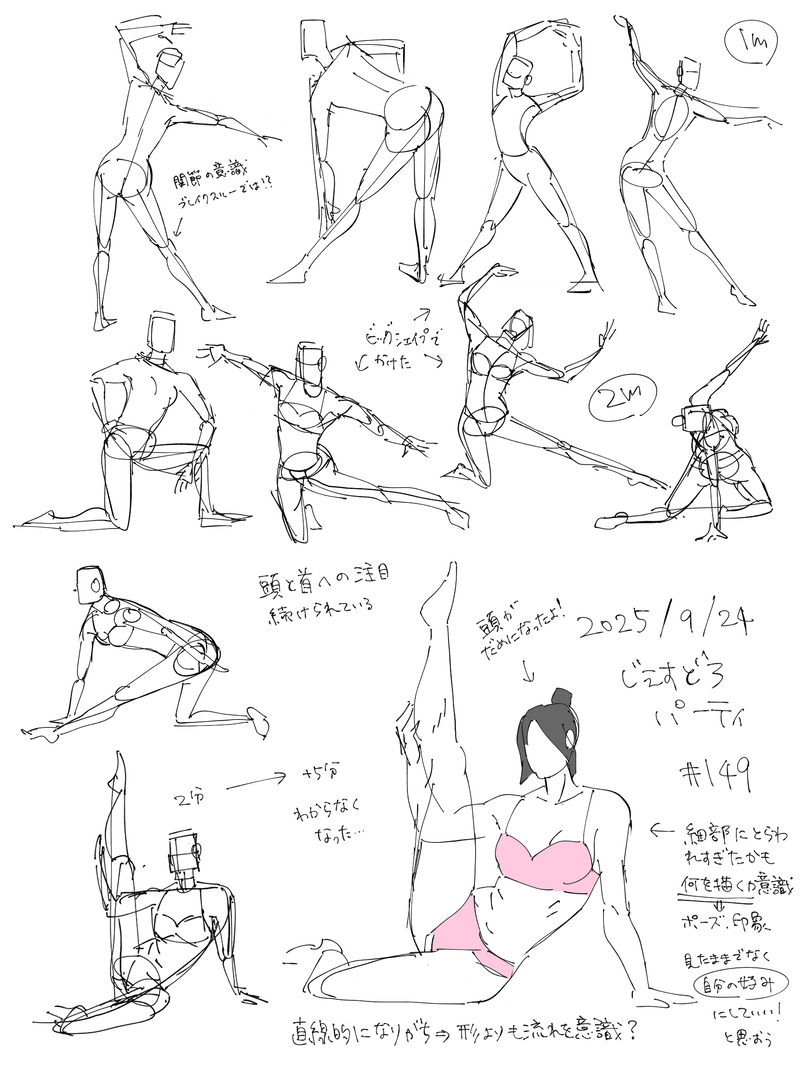 1m
関節の意識
ブレイクスルーでは!?
ビッグシェイプで
かけた
2m
頭と首への注目
続けられている
頭が
だめになったよ!
2025/9/24
じぇすどろ
パーティ
#149
2分
+5分
わからなく
なった…
細部にとらわ
れすぎたかも
何を描くか意識
ポーズ、印象
見たままでなく
自分の好み
にしていい!
と思おう
直線的になりがち⇒形よりも流れを意識?